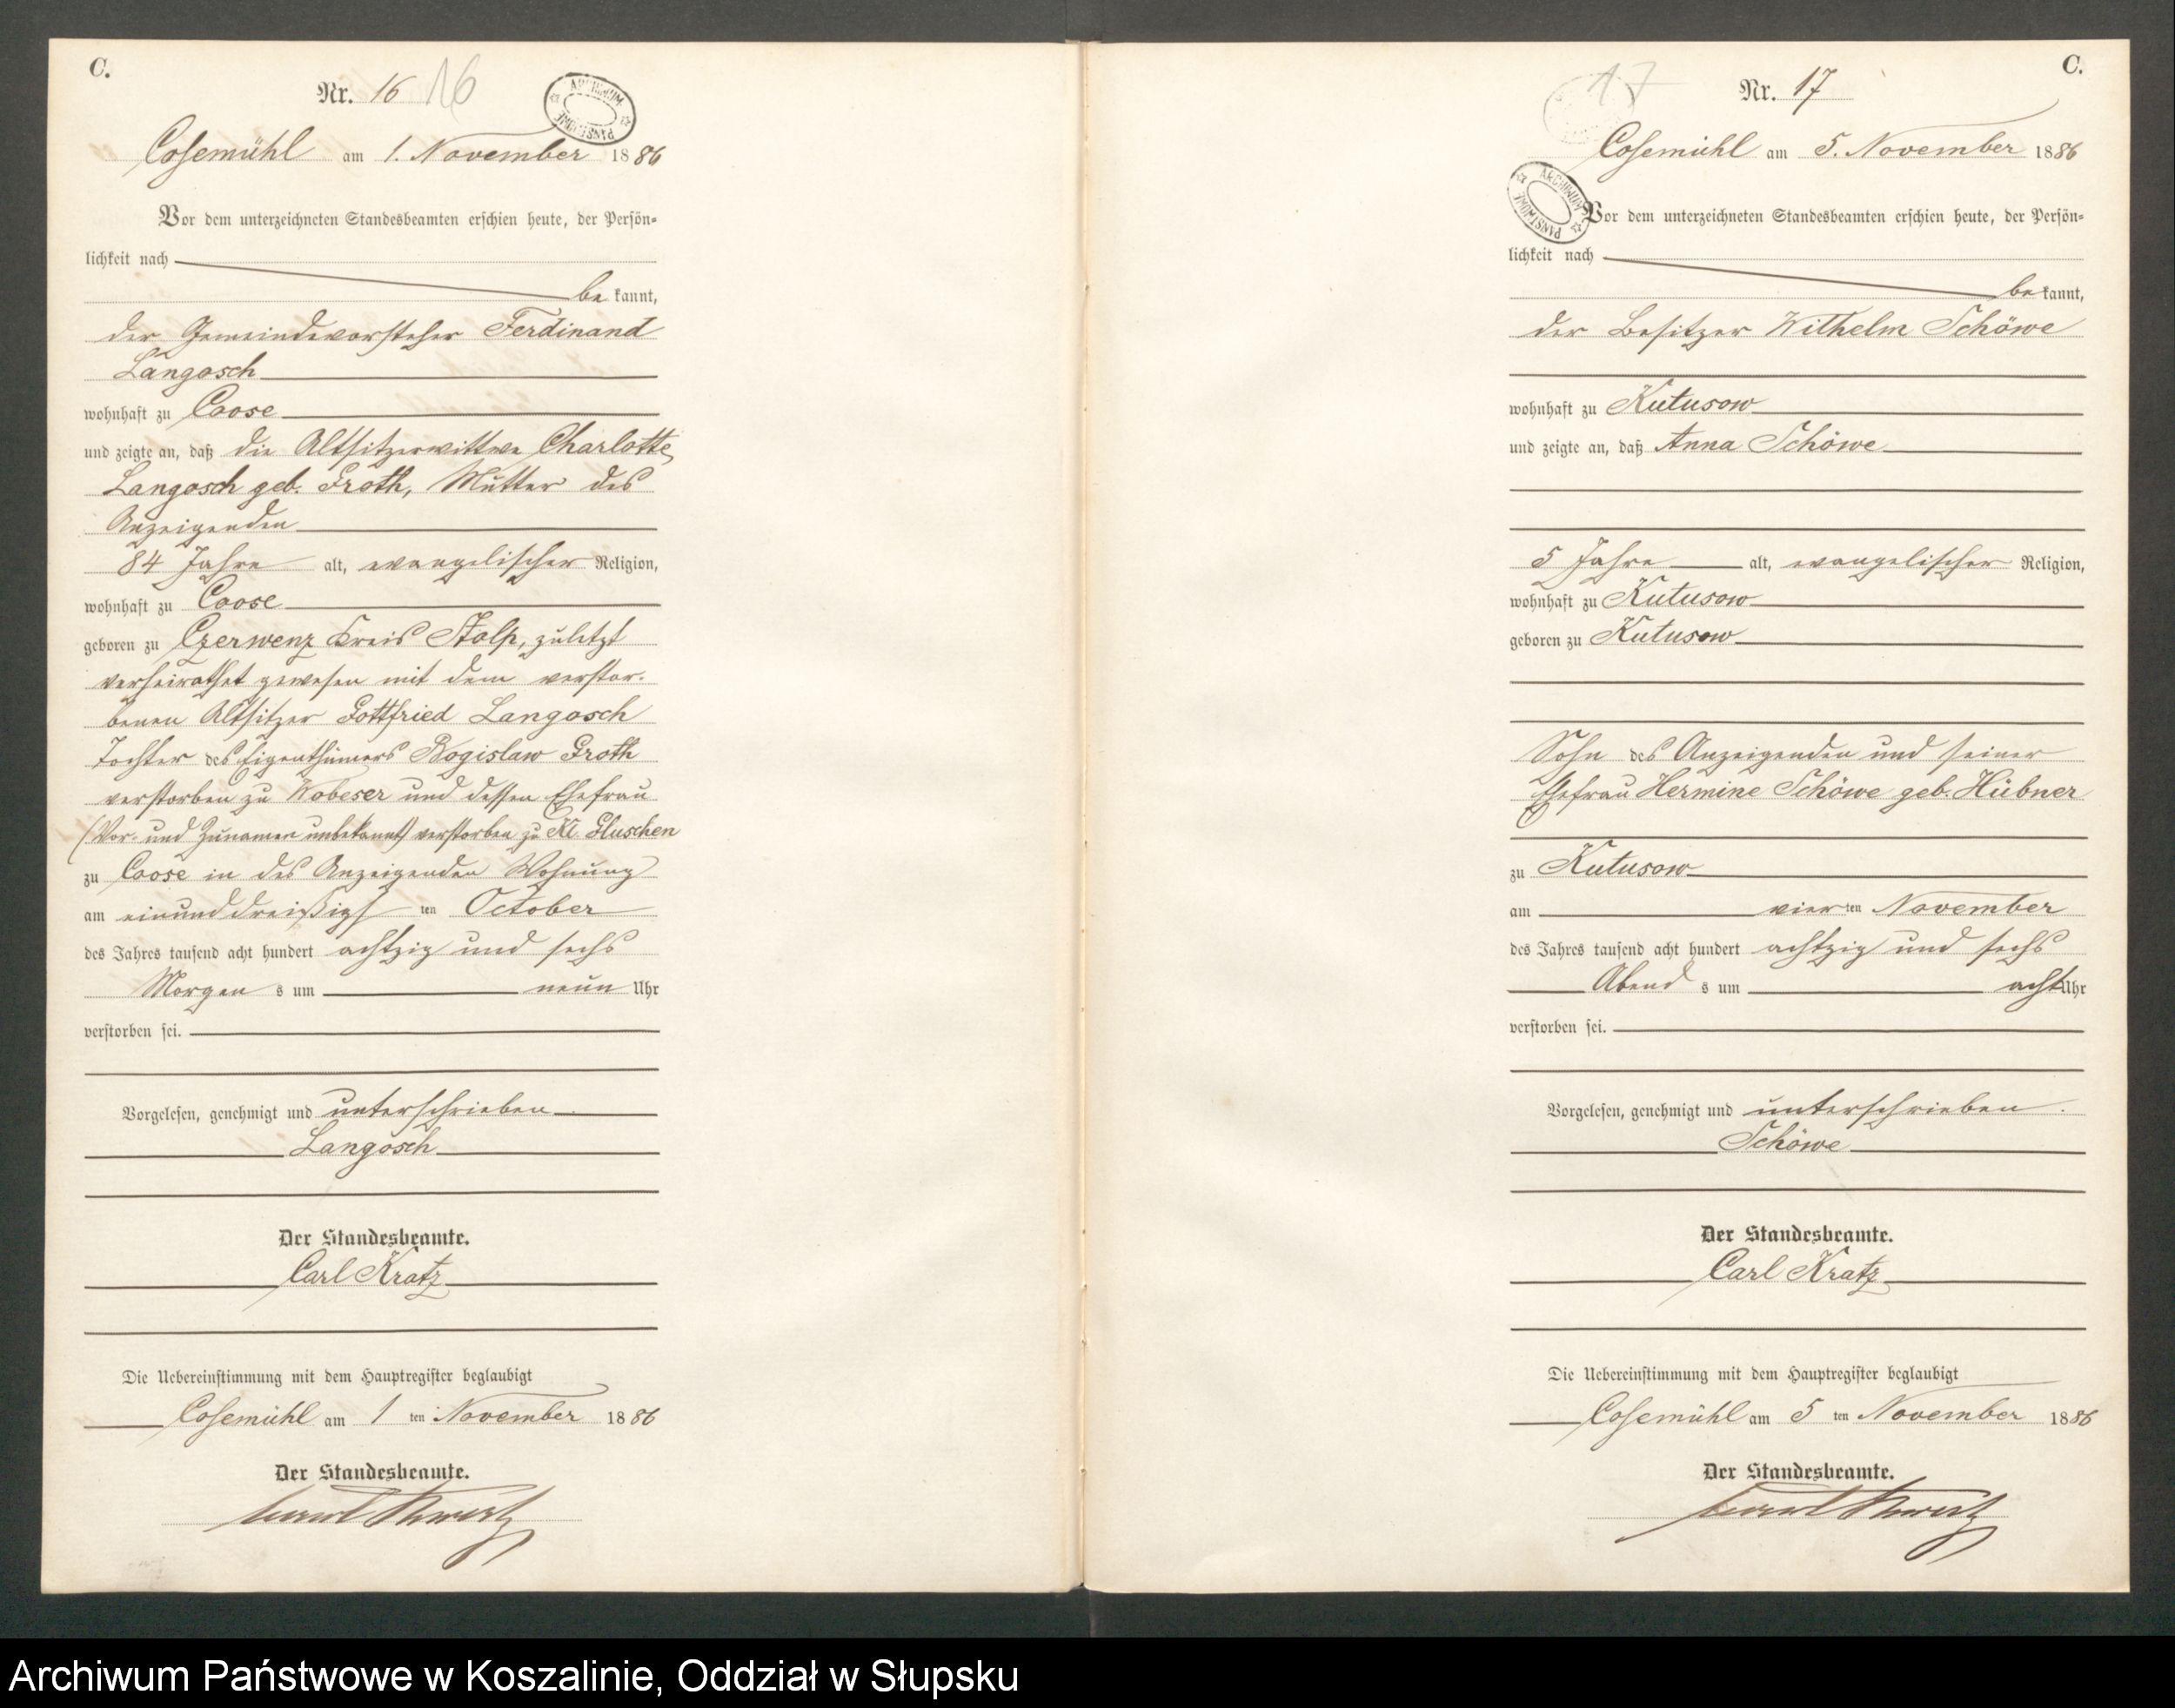 C.
Nr. 16 16
ARCHIWUM PAŃSTWOWE
Cosemühl am 1. November 1886
Vor dem unterzeichneten Standesbeamten erschien heute, der Persön-
lichkeit nach
be kannt,
der Gemeindevorsteher Ferdinand
Langosch
wohnhaft zu Coose
und zeigte an, daß die Altsitzerwittwe Charlotte
Langosch geb. Groth, Mutter des
Anzeigenden
84 Jahre alt, evangelischer Religion,
wohnhaft zu Coose
geboren zu Czerwenz Kreis Stolp, zuletzt
verheirathet gewesen mit dem verstor-
benen Altsitzer Gottfried Langosch
Tochter des Eigenthümers Bogislaw Groth
verstorben zu Wobeser und dessen Ehefrau
(Vor- und Zunamen unbekannt) verstorben zu Kl. Gluschen
zu Coose in des Anzeigenden Wohnung
am einunddreißigst ten October
des Jahres tausend acht hundert achtzig und sechs
Morgen s um neun Uhr
verstorben sei.
Vorgelesen, genehmigt und unterschrieben
Langosch
Der Standesbeamte.
Carl Kratz
Die Uebereinstimmung mit dem Hauptregister beglaubigt
Cosemühl am 1 ten November 1886
Der Standesbeamte.
Carl Kratz
C.
17 Nr. 17
Cosemühl am 5. November 1886
ARCHIWUM PAŃSTWOWE
Vor dem unterzeichneten Standesbeamten erschien heute, der Persön-
lichkeit nach
be kannt,
der Besitzer Wilhelm Schöwe
wohnhaft zu Kutusow
und zeigte an, daß Anna Schöwe
5 Jahre alt, evangelischer Religion,
wohnhaft zu Kutusow
geboren zu Kutusow
Sohn des Anzeigenden und seiner
Ehefrau Hermine Schöwe geb. Hübner
zu Kutusow
am vier ten November
des Jahres tausend acht hundert achtzig und sechs
Abend s um acht Uhr
verstorben sei.
Vorgelesen, genehmigt und unterschrieben.
Schöwe
Der Standesbeamte.
Carl Kratz
Die Uebereinstimmung mit dem Hauptregister beglaubigt
Cosemühl am 5 ten November 1886
Der Standesbeamte.
Carl Kratz
Archiwum Państwowe w Koszalinie, Oddział w Słupsku